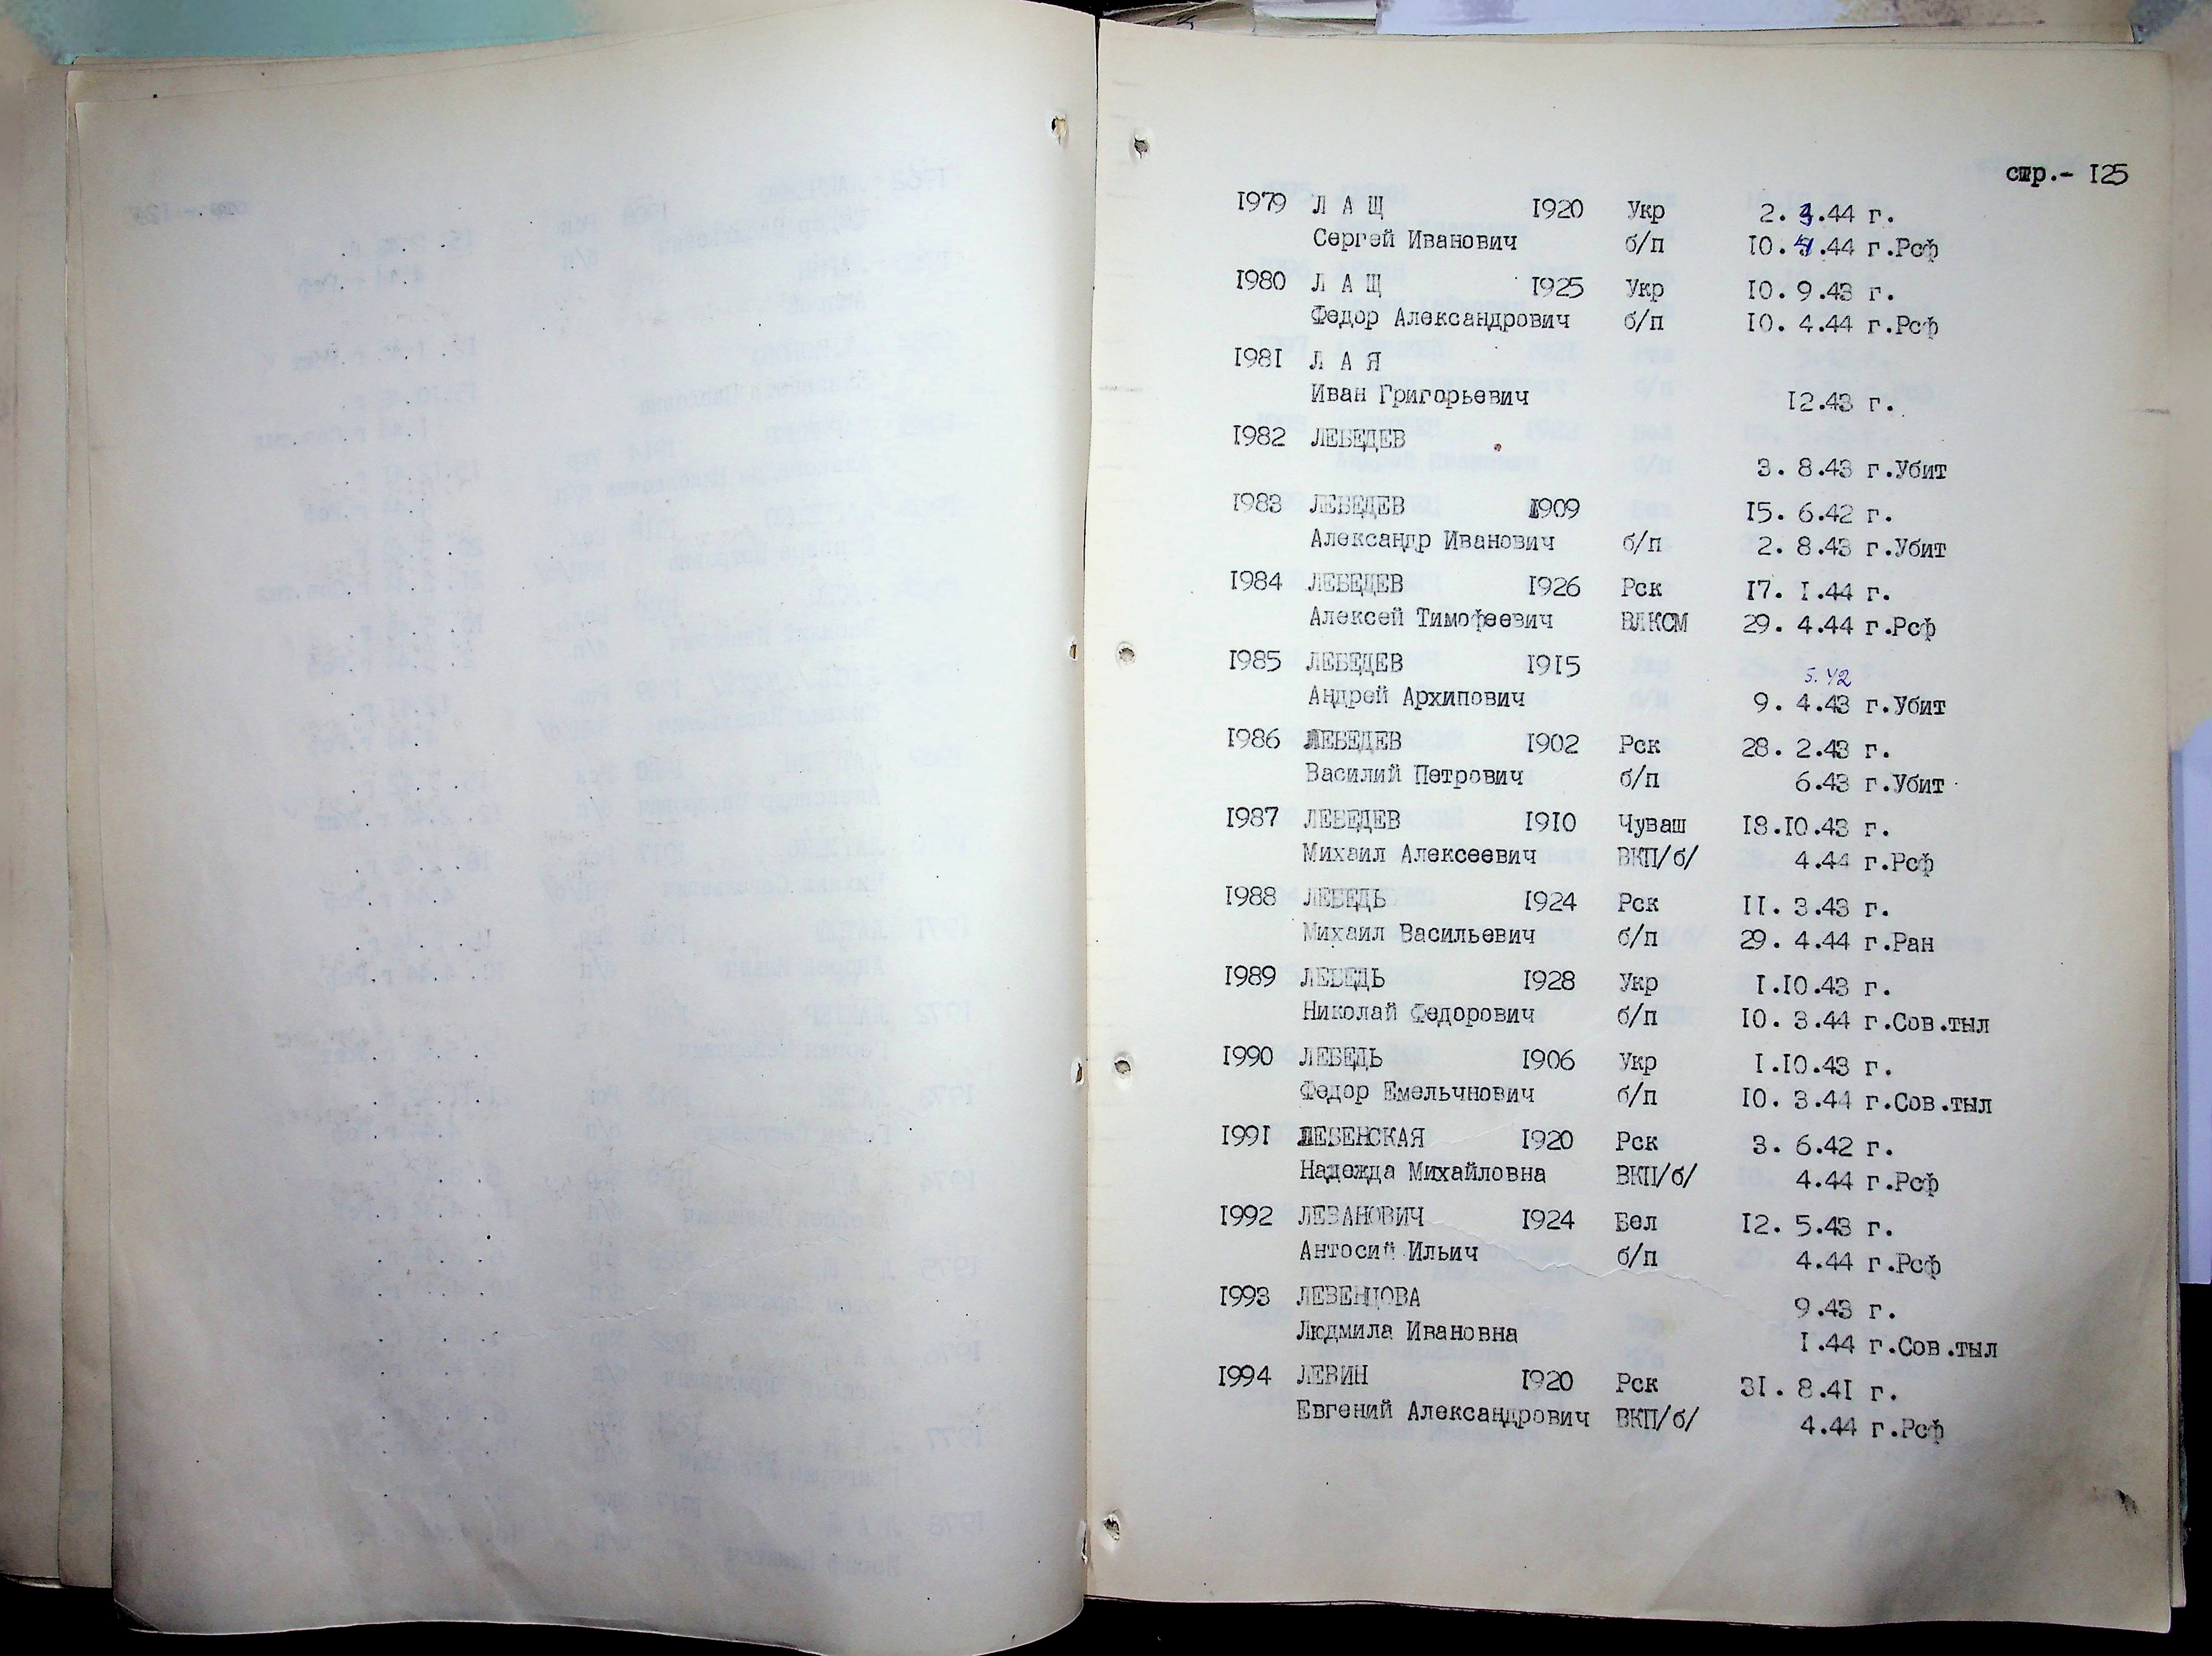 стр.- 125
1979 Л А Щ 1920 Укр 2. 3.44 г.
Сергей Иванович б/п 10. 4.44 г.Рсф
1980 Л А Щ 1925 Укр 10. 9.43 г.
Федор Александрович б/п 10. 4.44 г.Рсф
1981 Л А Я
Иван Григорьевич 12.43 г.
1982 ЛЕБЕДЕВ
3. 8.43 г.Убит
1983 ЛЕБЕДЕВ 1909 15. 6.42 г.
Александр Иванович б/п 2. 8.43 г.Убит
1984 ЛЕБЕДЕВ 1926 Рск 17. 1.44 г.
Алексей Тимофеевич ВЛКСМ 29. 4.44 г.Рсф
1985 ЛЕБЕДЕВ 1915 5.42
Андрей Архипович 9. 4.43 г.Убит
1986 ЛЕБЕДЕВ 1902 Рск 28. 2.43 г.
Василий Петрович б/п 6.43 г.Убит
1987 ЛЕБЕДЕВ 1910 Чуваш 18.10.43 г.
Михаил Алексеевич ВКП/б/ 4.44 г.Рсф
1988 ЛЕБЕДЬ 1924 Рск 11. 3.43 г.
Михаил Васильевич б/п 29. 4.44 г.Ран
1989 ЛЕБЕДЬ 1928 Укр 1.10.43 г.
Николай Федорович б/п 10. 3.44 г.Сов.тыл
1990 ЛЕБЕДЬ 1906 Укр 1.10.43 г.
Федор Емельчнович б/п 10. 3.44 г.Сов.тыл
1991 ЛЕБЕНСКАЯ 1920 Рск 3. 6.42 г.
Надежда Михайловна ВКП/б/ 4.44 г.Рсф
1992 ЛЕВАНОВИЧ 1924 Бел 12. 5.43 г.
Антосий Ильич б/п 4.44 г.Рсф
1993 ЛЕВЕНЦОВА 9.43 г.
Людмила Ивановна 1.44 г.Сов.тыл
1994 ЛЕВИН 1920 Рск 31. 8.41 г.
Евгений Александрович ВКП/б/ 4.44 г.Рсф